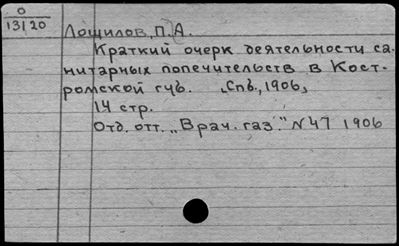 О
13/20
Лощилов, П.А.
Краткий очерк деятельности са-
нитарных попечительств в Кост-
ромской губ. Спб., 1906,
14 стр.
Отд. отт. „Врач. газ." N47 1906